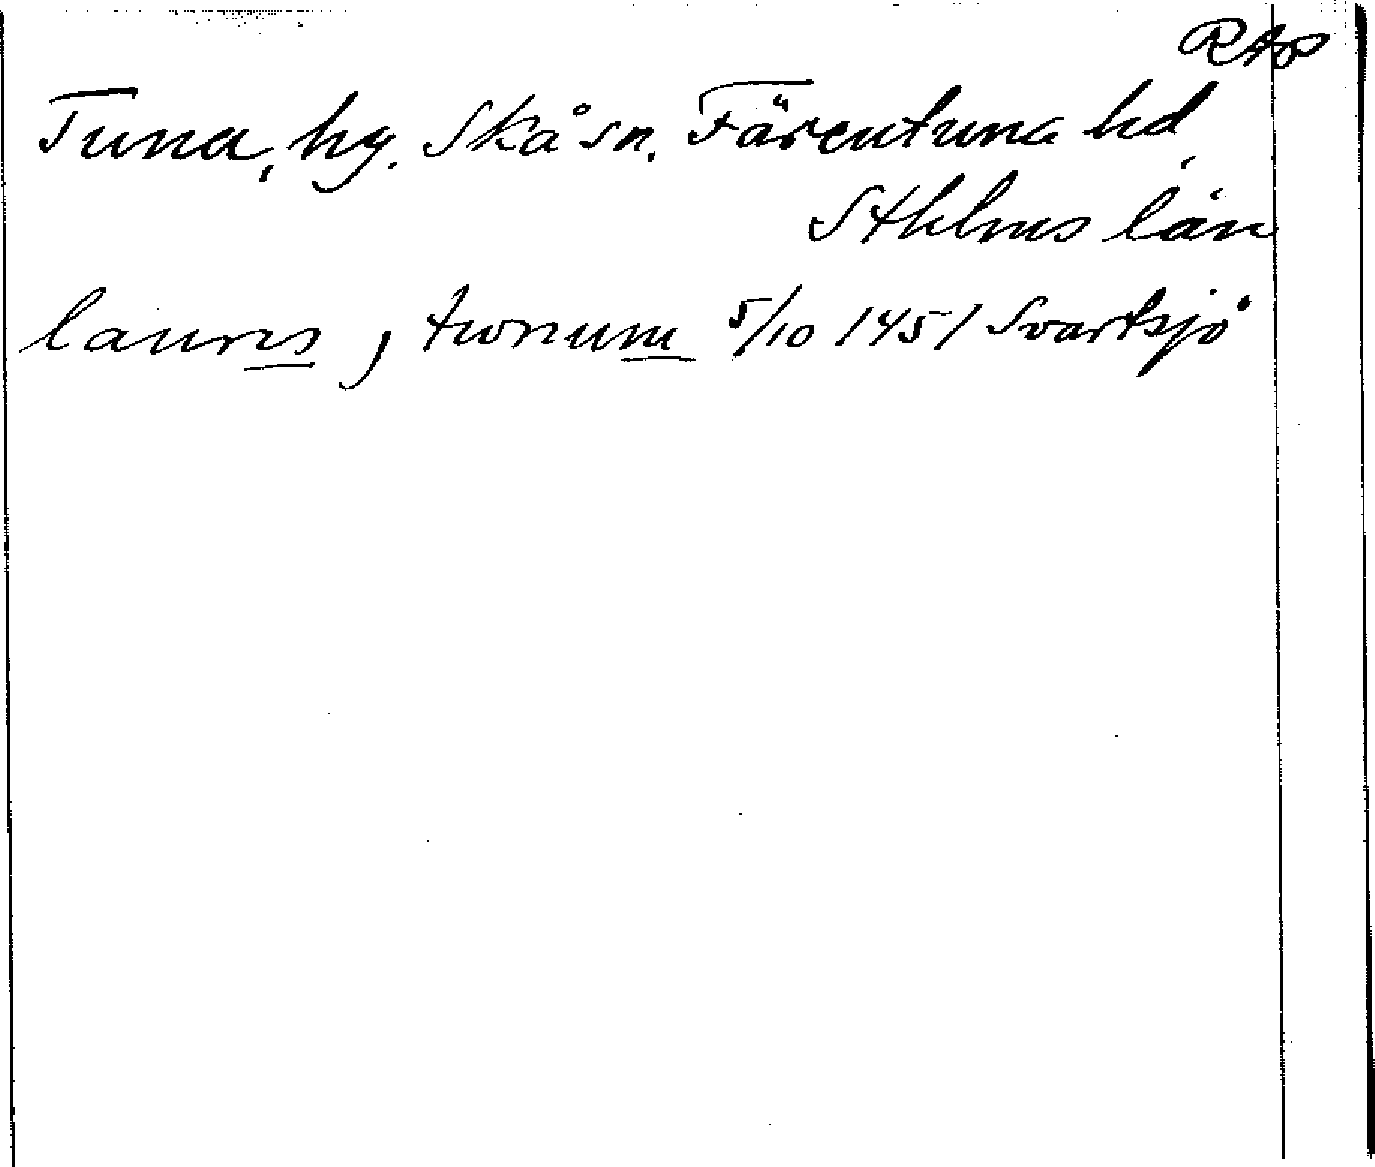 RAp
Tuna, hg. Skå sn. Färentuna hd,
Sthlms län
laurns j twnum 5/10 1451 Svartsjö